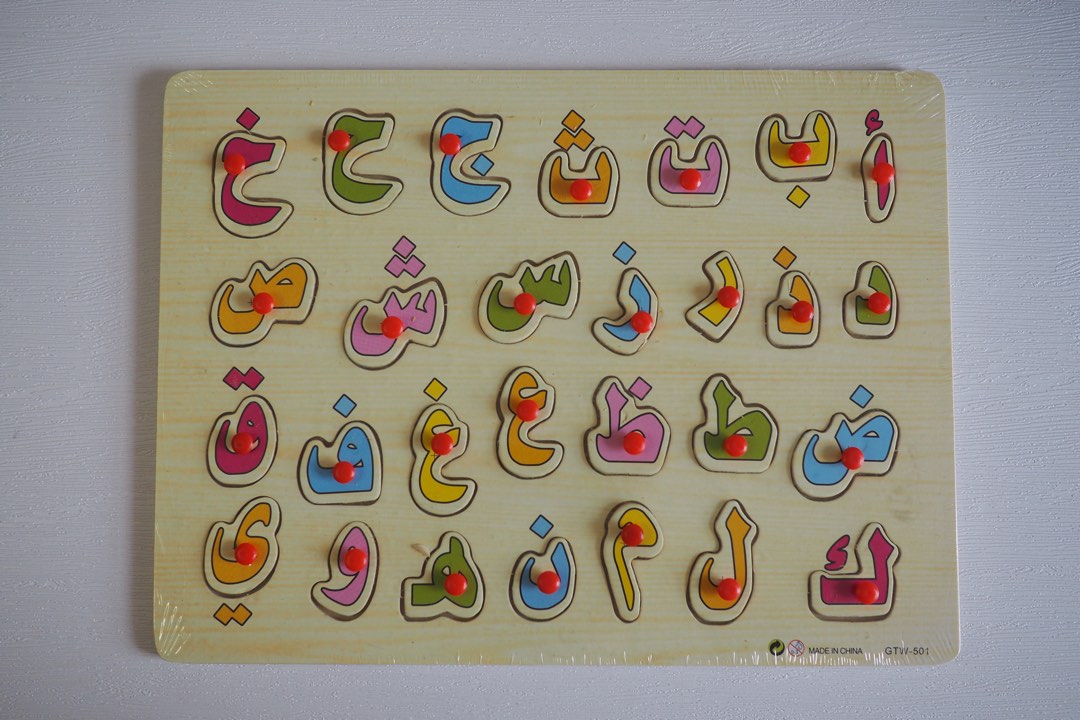 أ ب ت ث ج ح خ
د ذ ر ز س ش ص
ض ط ظ ع غ ف ق
ك ل م ن ه و ي
MADE IN CHINA GTW-501